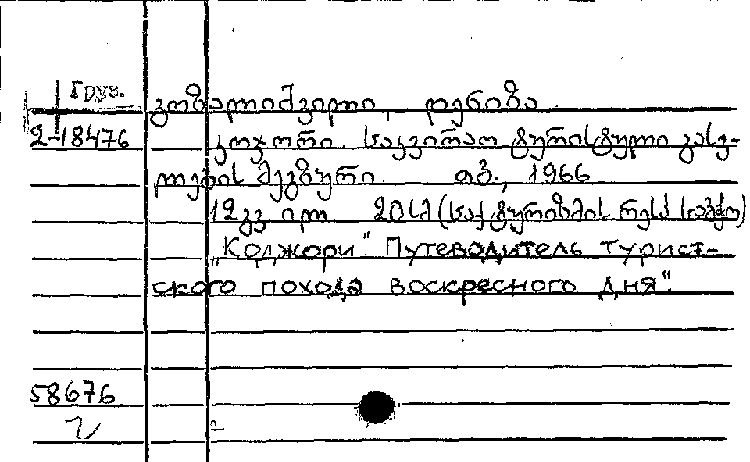 Груз.
2-18476
კობალიშვილი, ლეილა
კოჯორი. საკვირაო ტურისტული გასვ-
ლების მეგზური. თბ., 1966
12 გვ. ილ. 20სმ (საქ. ტურიზმის რესპ. საბჭო)
„Коджори" Путеводитель турист-
ского похода воскресного дня".
58676